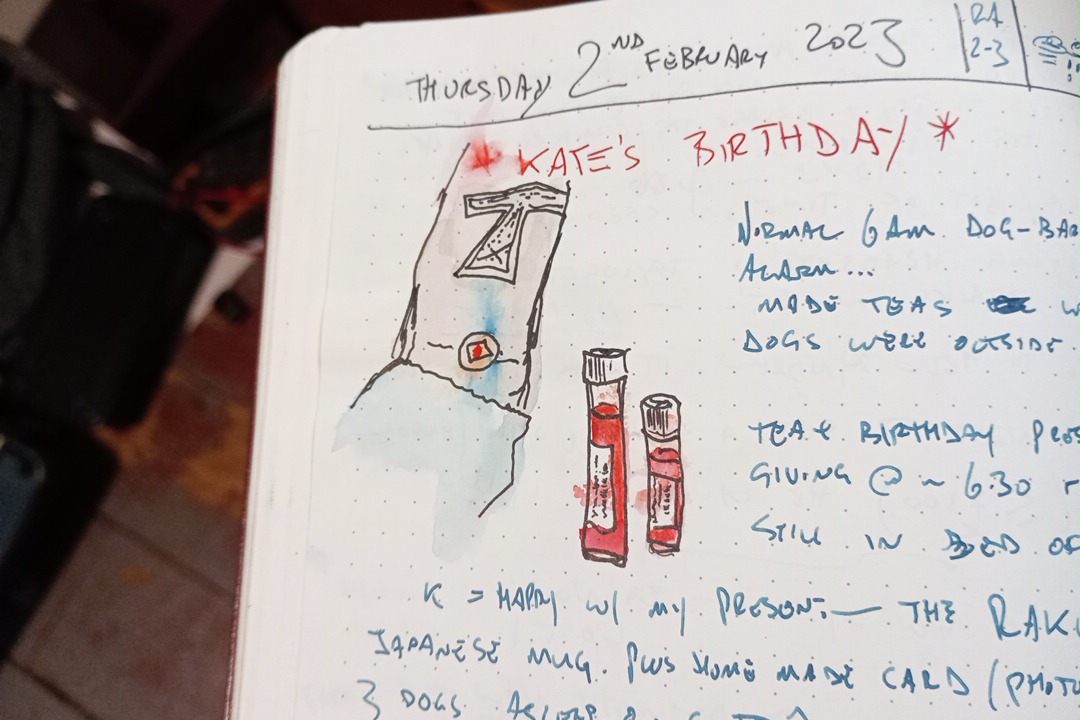 THURSDAY 2ND FEBRUARY 2023
RA
2-3
* KATE'S BIRTHDAY *
NORMAL 6AM DOG-BA
ALARM...
MADE TEAS W
DOGS WERE OUTSIDE
TEA + BIRTHDAY PRES
GIVING @ ~ 6.30
STILL IN BED
K = HAPPY W/ MY PRESENT — THE RAK
JAPANESE MUG. PLUS HOME MADE CARD (PHOTO
3 DOGS ASLEEP